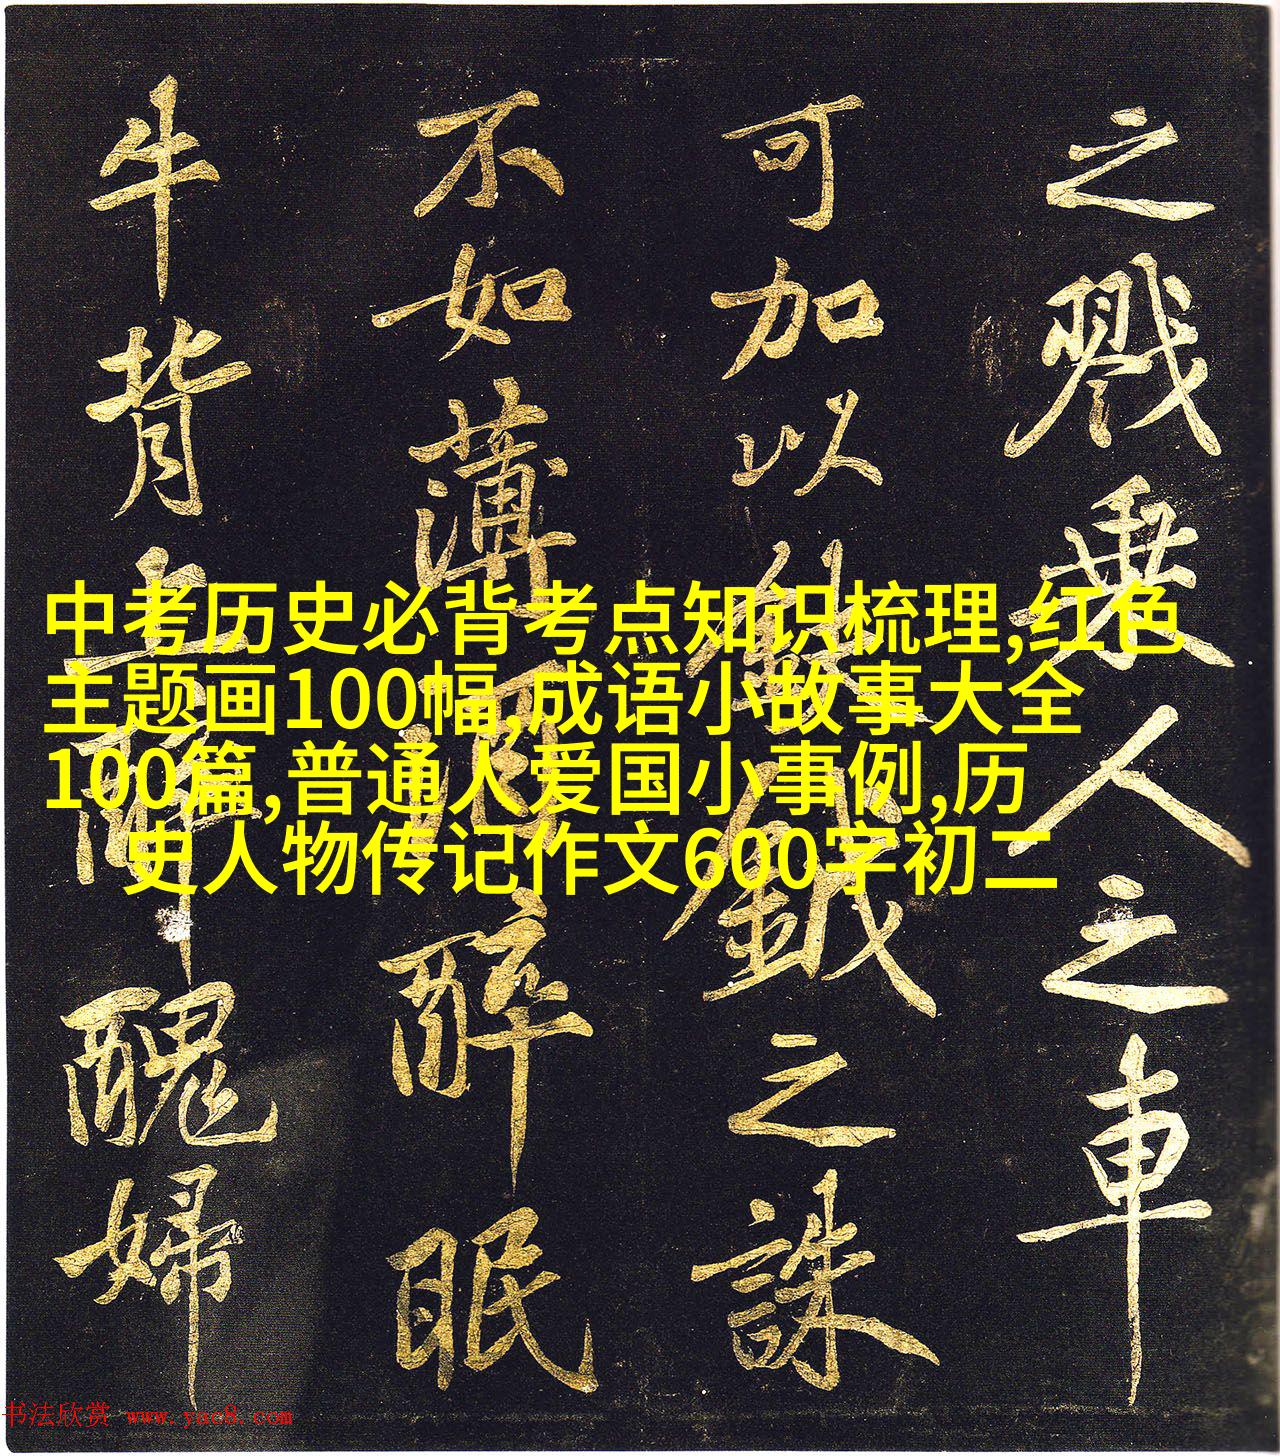 之戮乘人之車
可加以鈇鉞之誅
不如薄酒醉眠
牛背上醜婦
中考历史必背考点知识梳理,红色
主题画100幅,成语小故事大全
100篇,普通人爱国小事例,历
史人物传记作文600字初二
书法欣赏 www.yac8.com